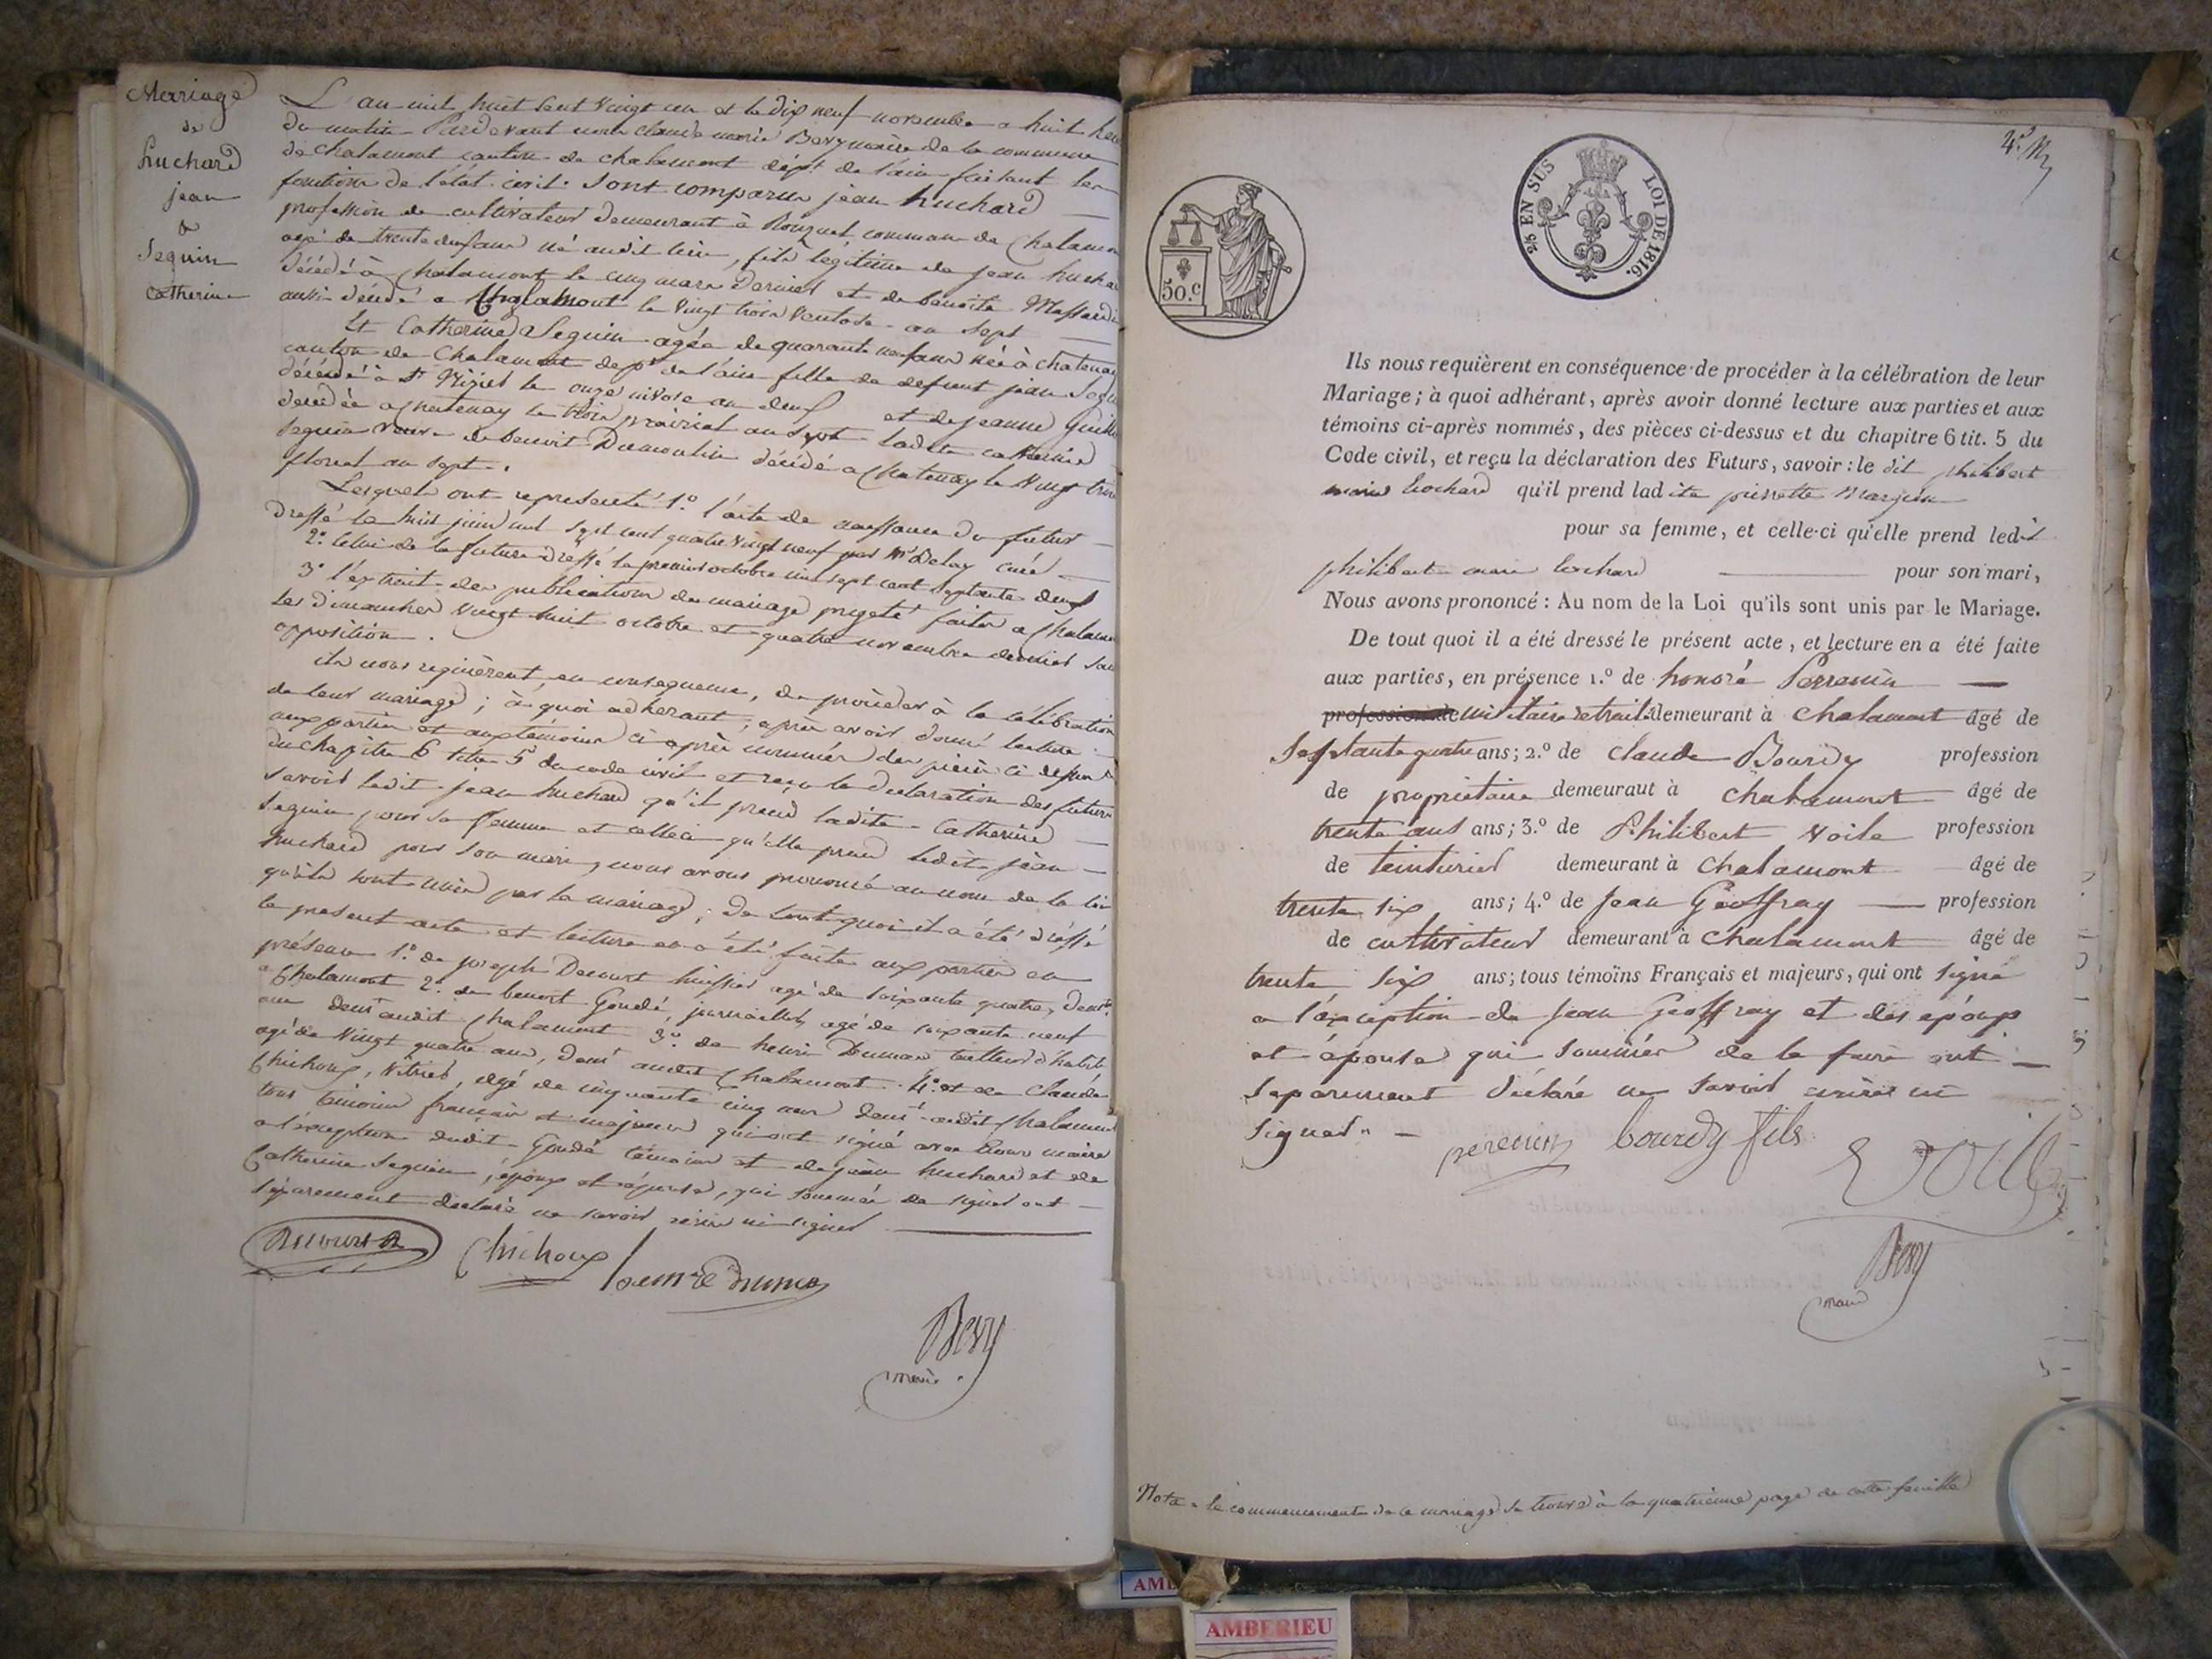 Mariage
de
huchard
jean
&
Seguin
catherine
L'an mil huit cent vingt un et le dix neuf novembre a huit heu
du matin Pardevant nous claude marie Bevy maire de la commune
de chalamont canton de chalamont dépt de l'ain faisant les
fonctions de l'état civil. sont comparus jean huchard
profession de cultivateur demeurant à Rouzuel commune de Chalamon
agé de trente deux ans né audit lieu, fils légitime de jean hucha
décédé à Chalamont le cinq mars dernier et de benoite Massard
aussi décédé a Chalamont le vingt trois ventose an sept
Et Catherine Seguin agée de quarante neuf ans née à chatenay
canton de Chalamont dept de l'ain fille de defunt jean Segu
décédé à St Nizier le onze nivose an deux et de jeanne Guill
décédée a chatenay le trois prairial an sept ladite catherine
Seguin veuve de benoit Dumoulin décédé a Chatenay le vingt trois
floreal an sept.
Lesquels ont representé 1.º l'acte de naissance du futur
dressé le huit juin mil sept cent quatre vingt neuf par Mr Delay curé
2.º Celui de la future dressé le premier octobre mil sept cent septante deux
3.º l'extrait des publications de mariage projeté faites a Chalamon
les dimanches vingt huit octobre et quatre novembre dernier san
opposition.
ils nous requièrent, en consequence, de procéder à la célébration
de leur mariage; à quoi adherant, après avoir donné lecture
aux parties et aux temoins ci après nommés des pièces ci dessus &
du chapitre 6 titre 5 du code civil et reçu la declaration des futurs
savoir ledit jean huchard qu'il prend ladite Catherine
Seguin pour sa femme et celleci qu'elle prend ledit jean
huchard pour son mari, nous avons prononcé au nom de la loi
qu'ils sont unis par le mariage; de tout quoi il a été dressé
le present acte et lecture en a été faite aux parties en
présence 1.º de joseph Decourt huissier agé de soixante quatre, demt
a Chalamont 2.º de benoit Goudé, journaillier, agé de soixante neuf
ans demt audit Chalamont 3.º de henri Dumas tailleur d'habits
agé de vingt quatre ans, demt audit Chalamont. 4.º et de Claude
Chichoux, vitrier, agé de cinquante cinq ans demt audit Chalamont
tous témoins français et majeurs qui ont signé avec nous maire
a l'exception dudit Goudé témoin et de jean huchard et de
Catherine Seguin, époux et épouse, qui sommés de signer ont
séparement declaré ne savoir écrire ni signer
Decourt Chichoux henri dumas
Bevy
maire
4.º
2/6 EN SUS LOI DE 1816.
50.c
Ils nous requièrent en conséquence de procéder à la célébration de leur
Mariage; à quoi adhérant, après avoir donné lecture aux parties et aux
témoins ci-après nommés, des pièces ci-dessus et du chapitre 6 tit. 5 du
Code civil, et reçu la déclaration des Futurs, savoir: le dit philibert
marie bochard qu'il prend ladite pierrette Marjon
pour sa femme, et celle-ci qu'elle prend ledit
philibert marie bochard pour son mari,
Nous avons prononcé: Au nom de la Loi qu'ils sont unis par le Mariage.
De tout quoi il a été dressé le présent acte, et lecture en a été faite
aux parties, en présence 1.º de honoré Perrenin
profession de militaire retraité demeurant à chalamont âgé de
septante quatre ans; 2.º de claude Bourdy profession
de propriétaire demeuraut à chalamont âgé de
trente ans ans; 3.º de Philibert Voile profession
de teinturier demeurant à chalamont âgé de
trente six ans; 4.º de Jean Geoffray profession
de cultivateur demeurant à chalamont âgé de
trente six ans; tous témoins Français et majeurs, qui ont signé
a l'exception de Jean Geoffray et des époux
et épouse qui sommés de le faire ont
séparement déclaré ne savoir écrire ni
signer.
perrenin bourdy fils Voile
Bevy
maire
Nota - le commencement de ce mariage se trouve à la quatrieme page de cette feuille
AMBERIEU